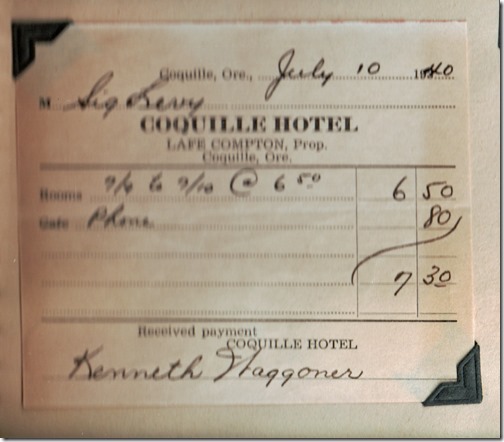 Coquille, Ore., July 10 1940
M Sig Levy
COQUILLE HOTEL
LAFE COMPTON, Prop.
Coquille, Ore.
Rooms 7/4 to 7/10 @ 6 50 6 50
Cafe Phone 80
7 30
Received payment
COQUILLE HOTEL
Kenneth Waggoner